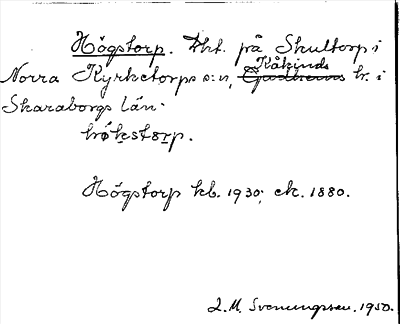 Högstorp. Tht. på Skultorp i
Kåkinds
Norra Kyrketorps s:n, Gudhems hr. i
Skaraborgs län.
hö́kstorp.
Högstorp kb. 1930; ek. 1880.
L.M. Svenungsson. 1950.